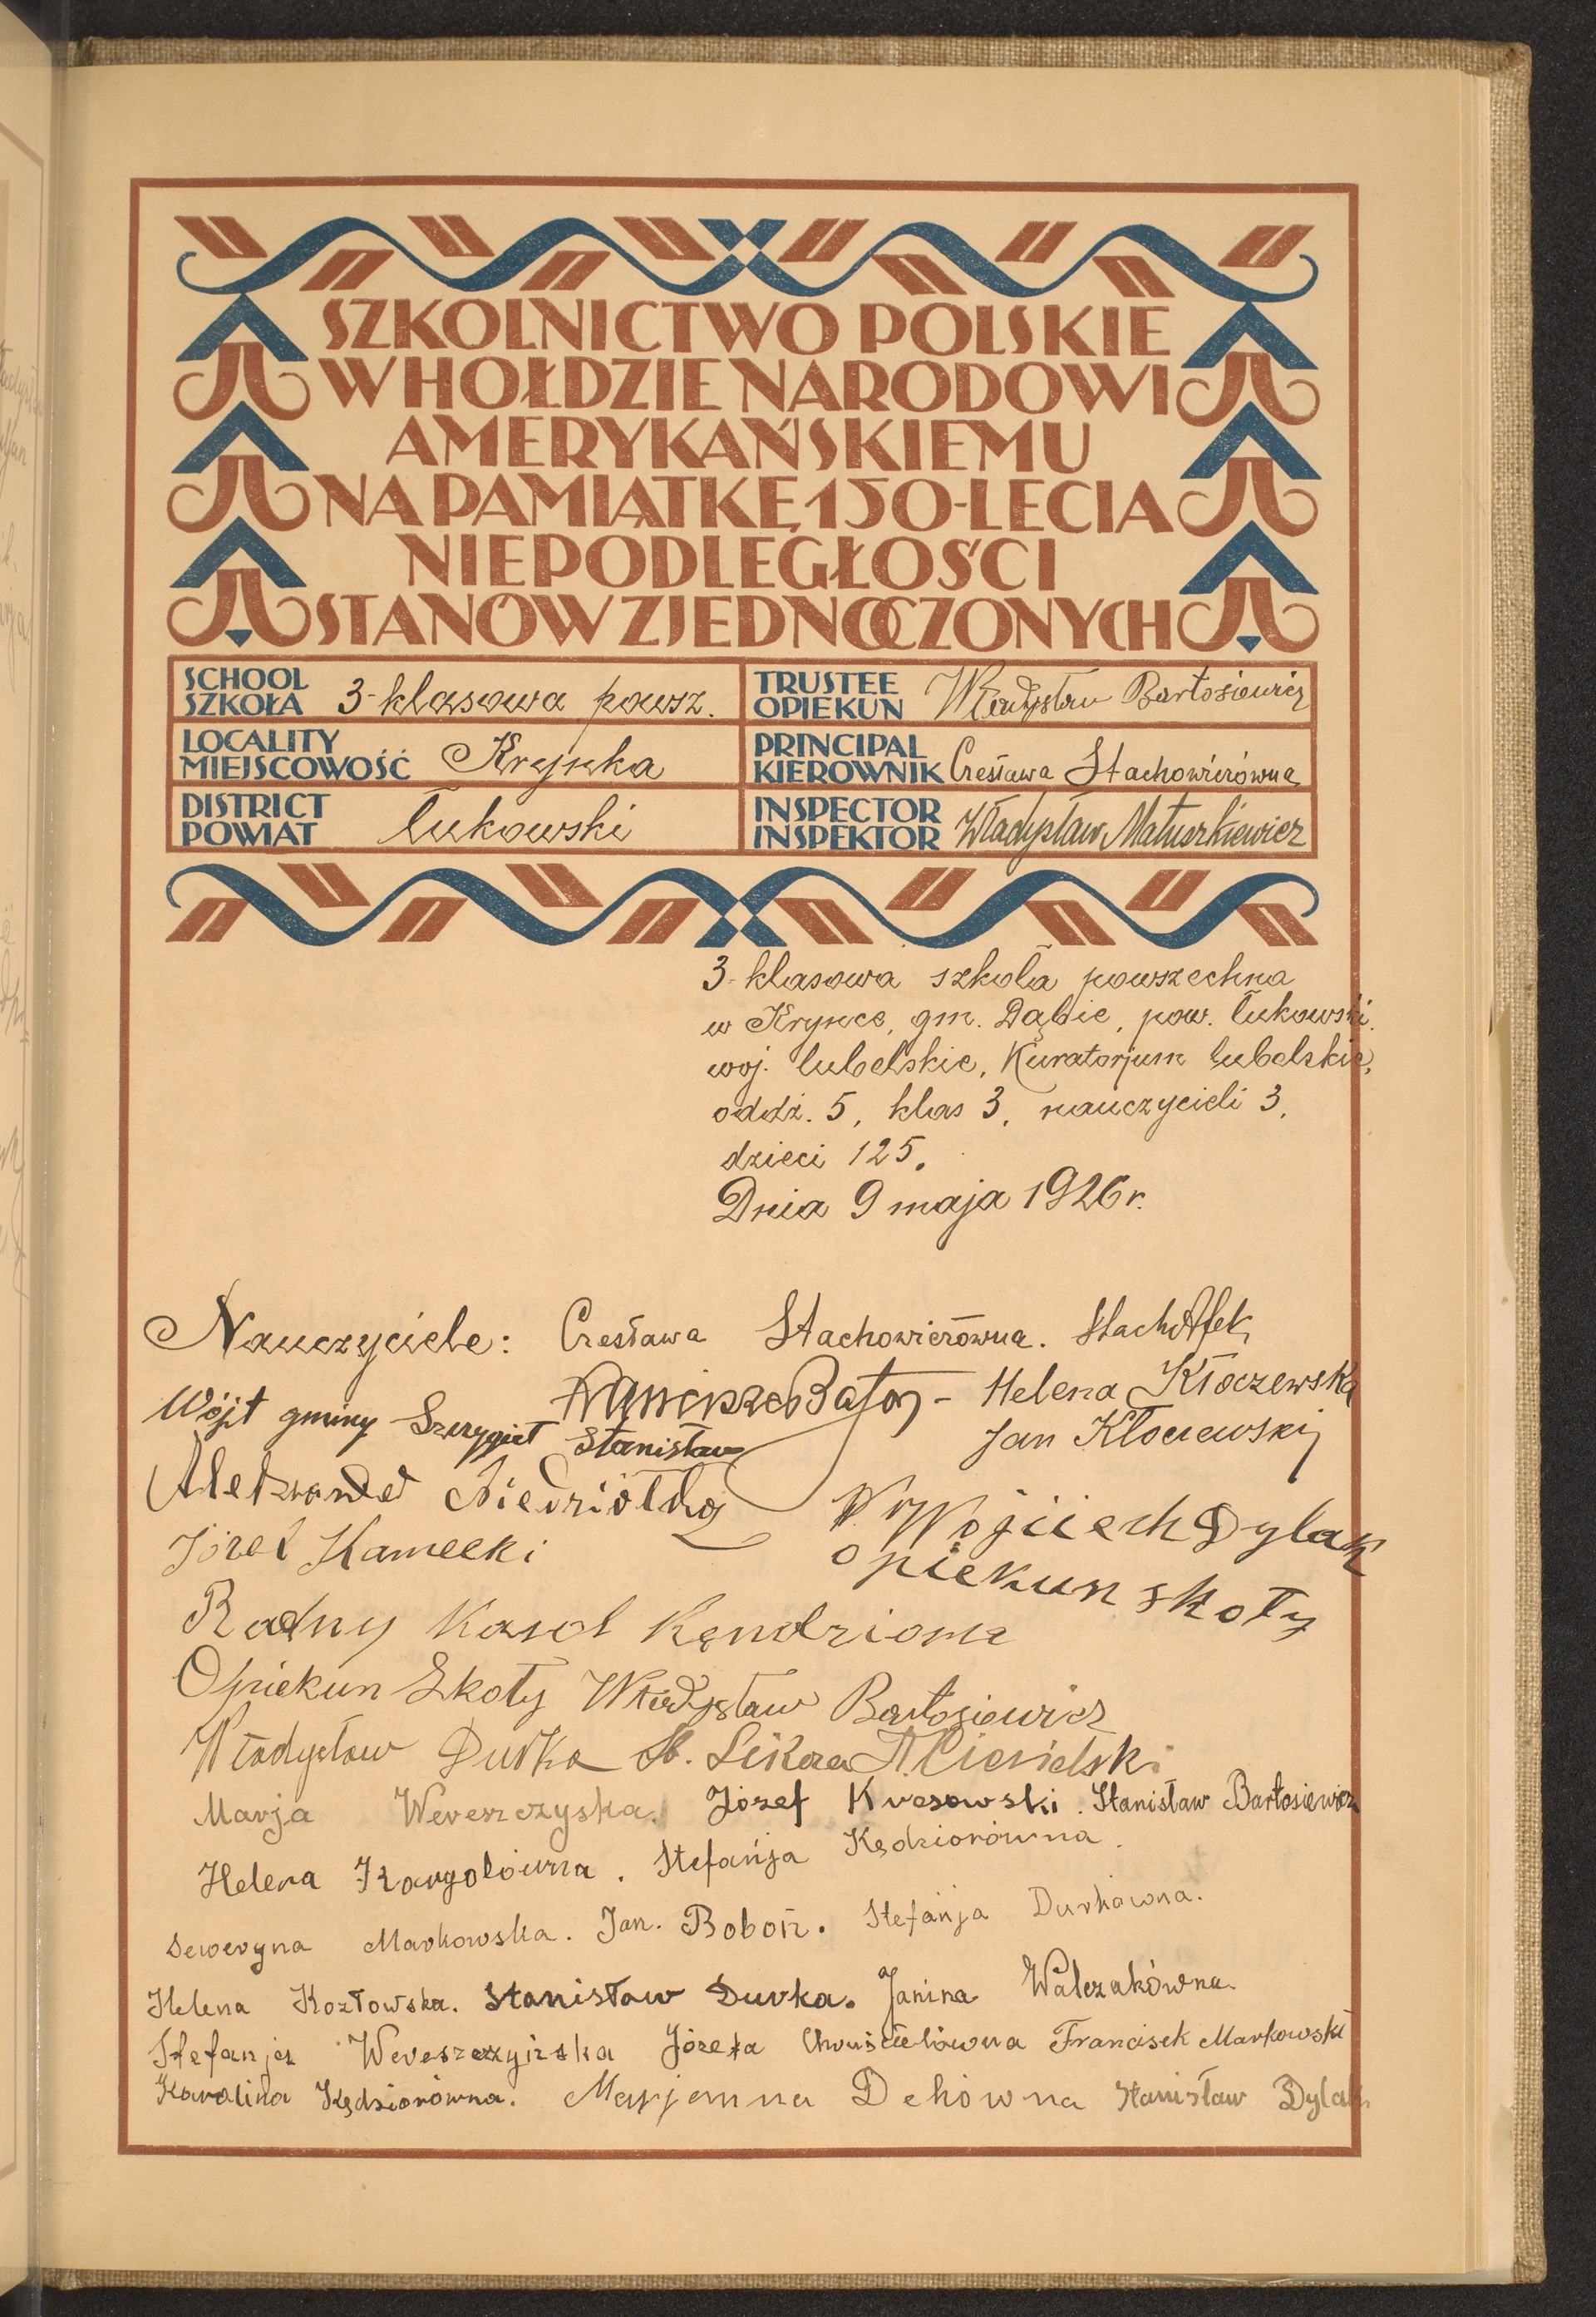 SZKOLNICTWO POLSKIE
W HOŁDZIE NARODOWI
AMERYKAŃSKIEMU
NA PAMIĄTKĘ 150-LECIA
NIEPODLEGŁOŚCI
STANÓW ZJEDNOCZONYCH
SCHOOL
SZKOŁA 3-klasowa powsz.
TRUSTEE
OPIEKUN Władysław Bartosiewicz
LOCALITY
MIEJSCOWOŚĆ Krynka
PRINCIPAL
KIEROWNIK Czesława Stachowiczówna
DISTRICT
POWIAT Łukowski
INSPECTOR
INSPEKTOR Władysław Matuszkiewicz
3-klasowa szkoła powszechna
w Krynce, gm. Dąbie, pow. Łukowski.
woj. lubelskie, Kuratorjum lubelskie,
oddz. 5, klas 3, nauczycieli 3,
dzieci 125.
Dnia 9 maja 1926 r.
Nauczyciele: Czesława Stachowiczówna. Stach Afek
Batog - Helena Kłoczewska
Wójt gminy Szczygieł Stanisław Jan Kłoczewski
Wojciech Dylak
Józef Kamecki opiekun skoły
Radny Karol Kendziora
Opiekun Skoły Władysław Bartosiewicz
Władysław Durka St. A. Ciesielski
Marja Wereszczyska. Józef Kresowski. Stanisław Bartosiewicz
Helena Kargolówna. Stefańja Kędziorówna.
Seweryna Markowska. Jan. Boboń. Stefańja Durkówna.
Helena Kozłowska. Stanisław Durka. Janina Walczakówna
Stefanja Wereszczyńska Józefa Chruścielówna Francisek Markowski
Karolina Kędziorówna. Marjanna Dekówna Stanisław Dylak